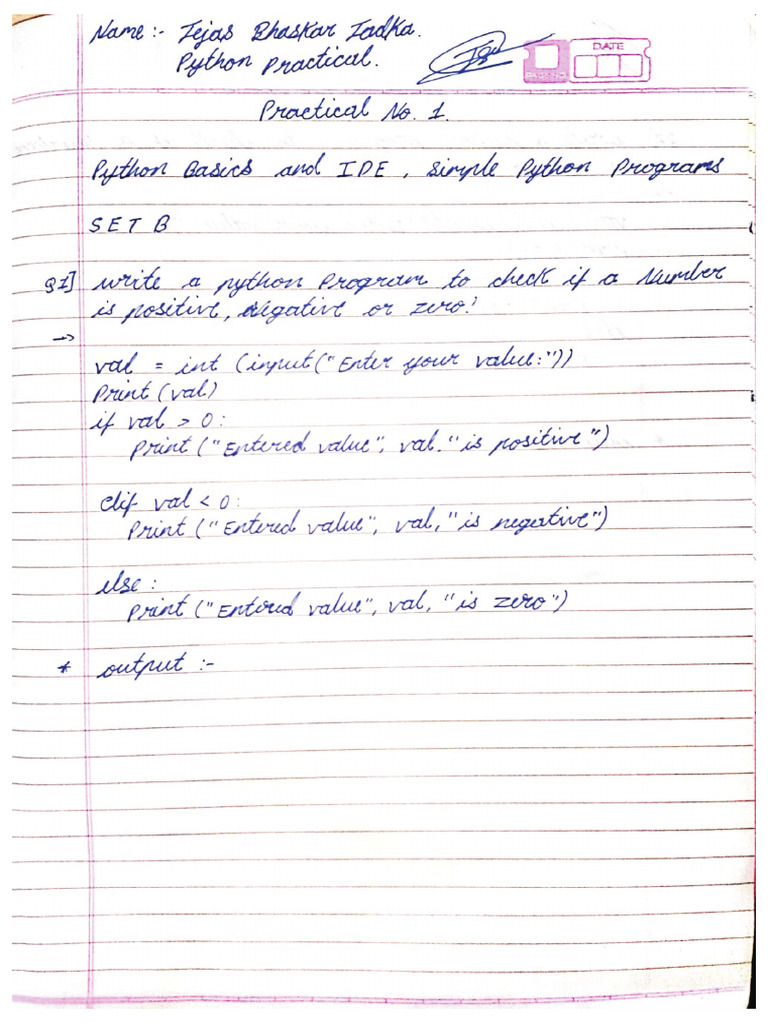 Name :- Tejas Bhaskar Zadka.
Python Practical.
DATE
Practical No. 1.
Python Basics and IDE, Simple Python Programs
SET B
Q1] Write a python Program to check if a Number
is positive, Negative or zero!
→
val = int (input("Enter your value:"))
Print (val)
if val > 0:
Print ("Entered value", val, "is positive")
elif val < 0:
Print ("Entered value", val, "is negative")
else :
Print ("Entered value", val, "is zero")
* output :-